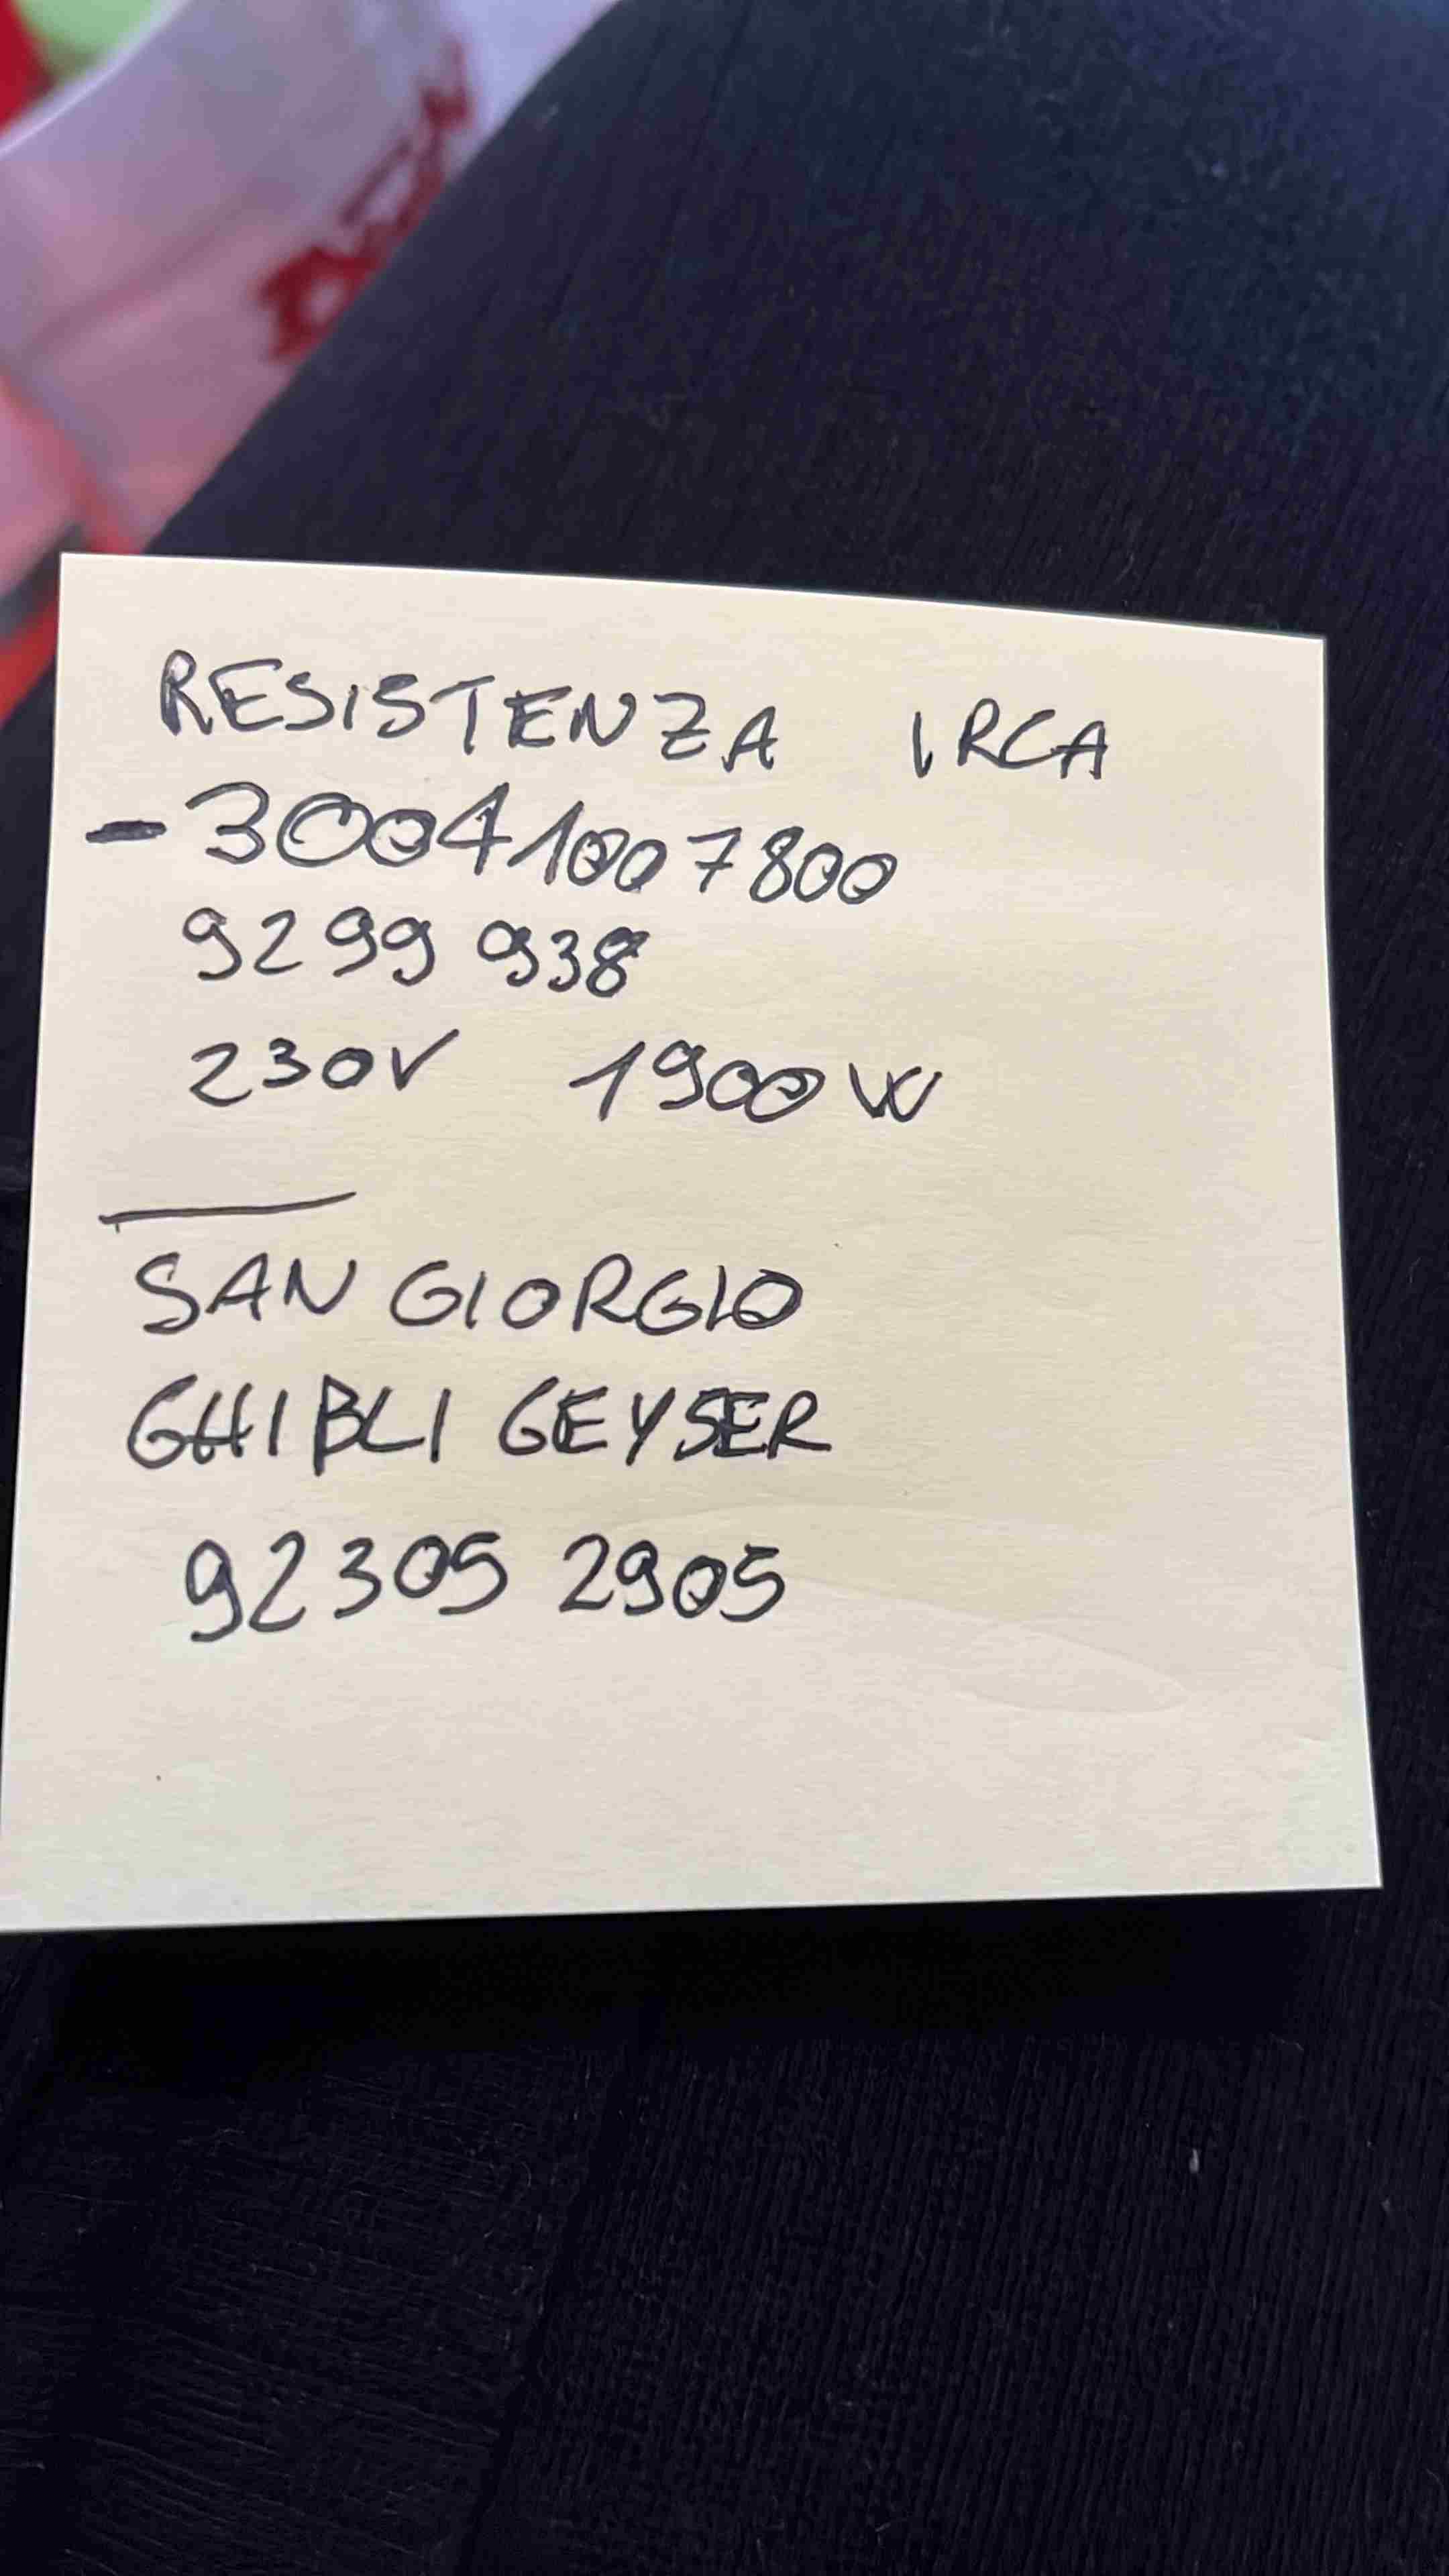 RESISTENZA IRCA
- 30041007800
9299 938
230V 1900W
SAN GIORGIO
GHIBLI GEYSER
92305 2905